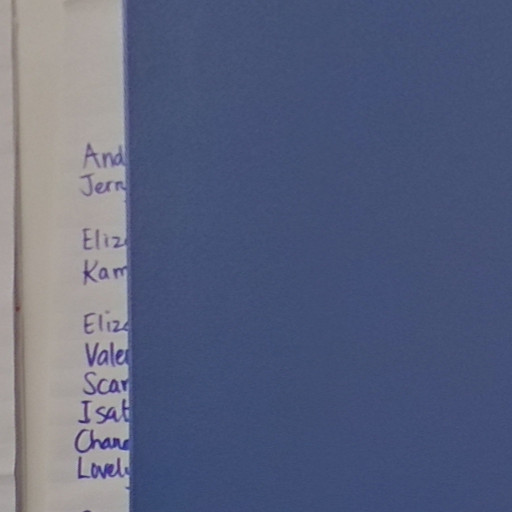 And
Jerry
Eliz
Kam
Eliz
Vale
Scar
Isab
Chan
Lovely